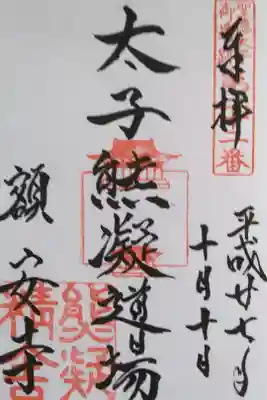 奉拝
太子熊凝道場
額安寺
平成廿七年
十月十日
熊凝
精舎